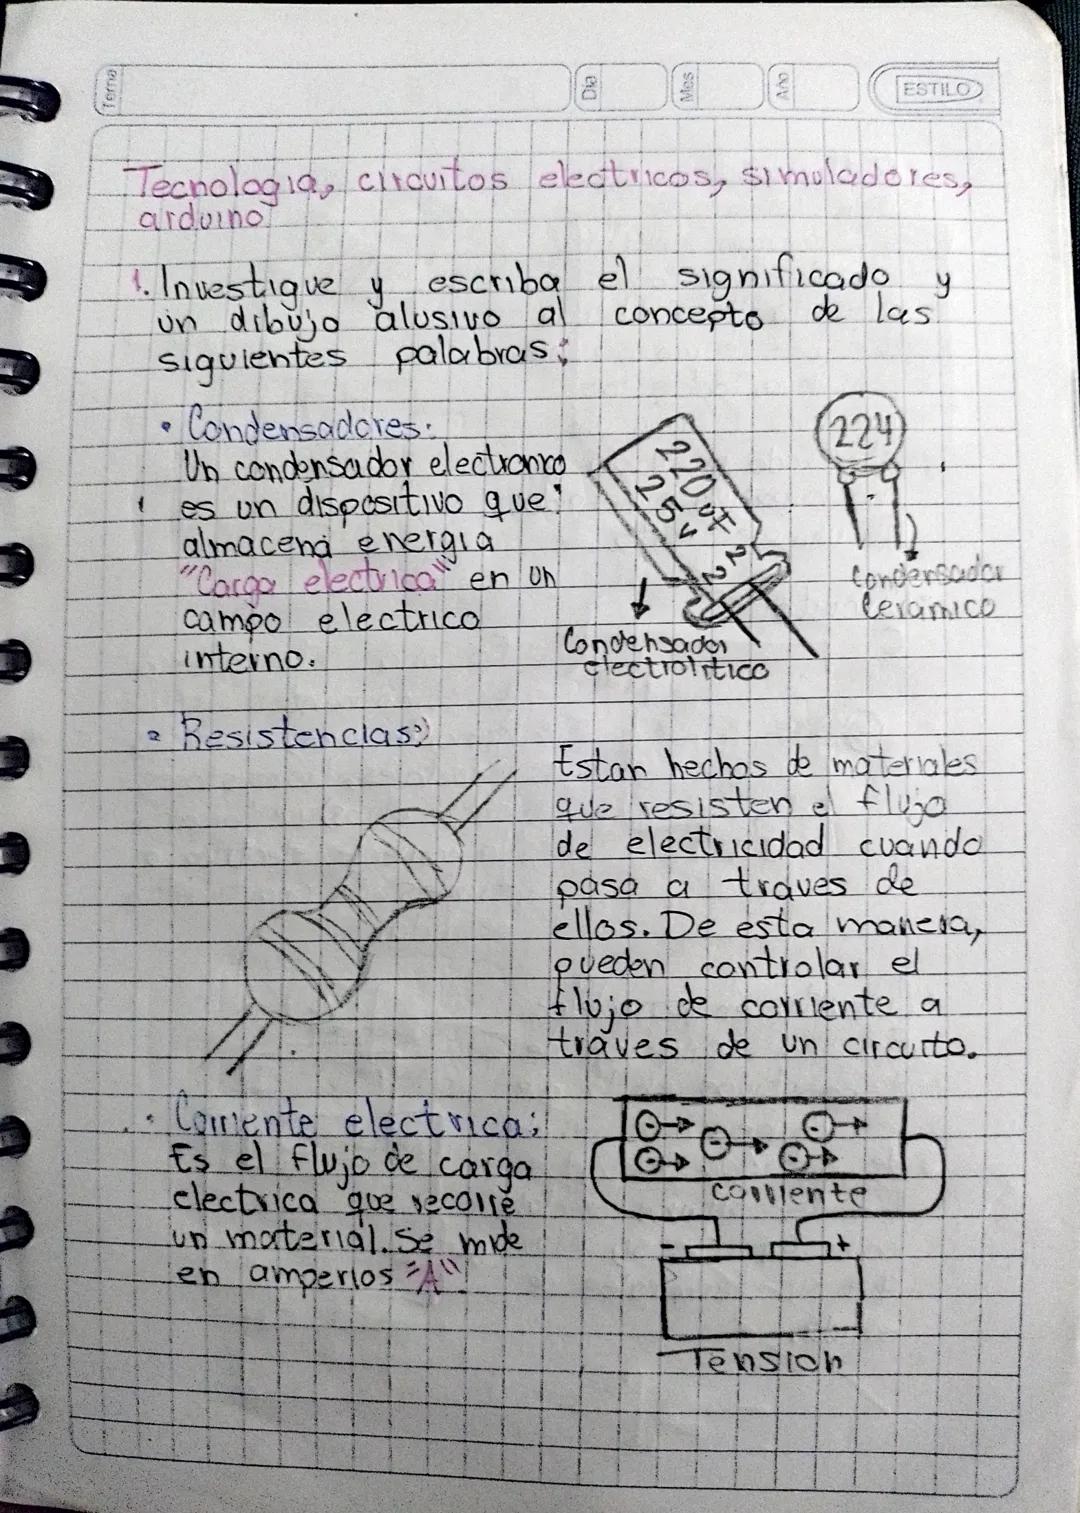 Tema
Dia
Mes
Año
ESTILO
Tecnologia, circuitos electricos, simuladores,
arduino
1. Investigue y escriba el significado y
un dibujo alusivo al concepto de las
siguientes palabras:
• Condensadores:
Un condensador electronico
es un dispositivo que
almacena energia
"Carga electrica" en un
campo electrico
interno.
220 uf
25v
22
Condensador
electrolitico
224
Condensador
Ceramico
• Resistencias:
Estan hechos de materiales
que resisten el flujo
de electricidad cuando
pasa a traves de
ellos. De esta manera,
pueden controlar el
flujo de corriente a
traves de un circuito.
• Corriente electrica:
Es el flujo de carga
electrica que recorre
un material. Se mide
en amperios "A"
corriente
- +
Tension